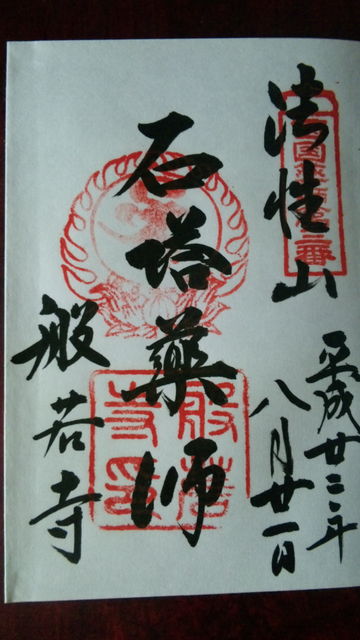 法性山
平成廿二年
八月廿一日
石塔薬師
般若寺
般若寺印